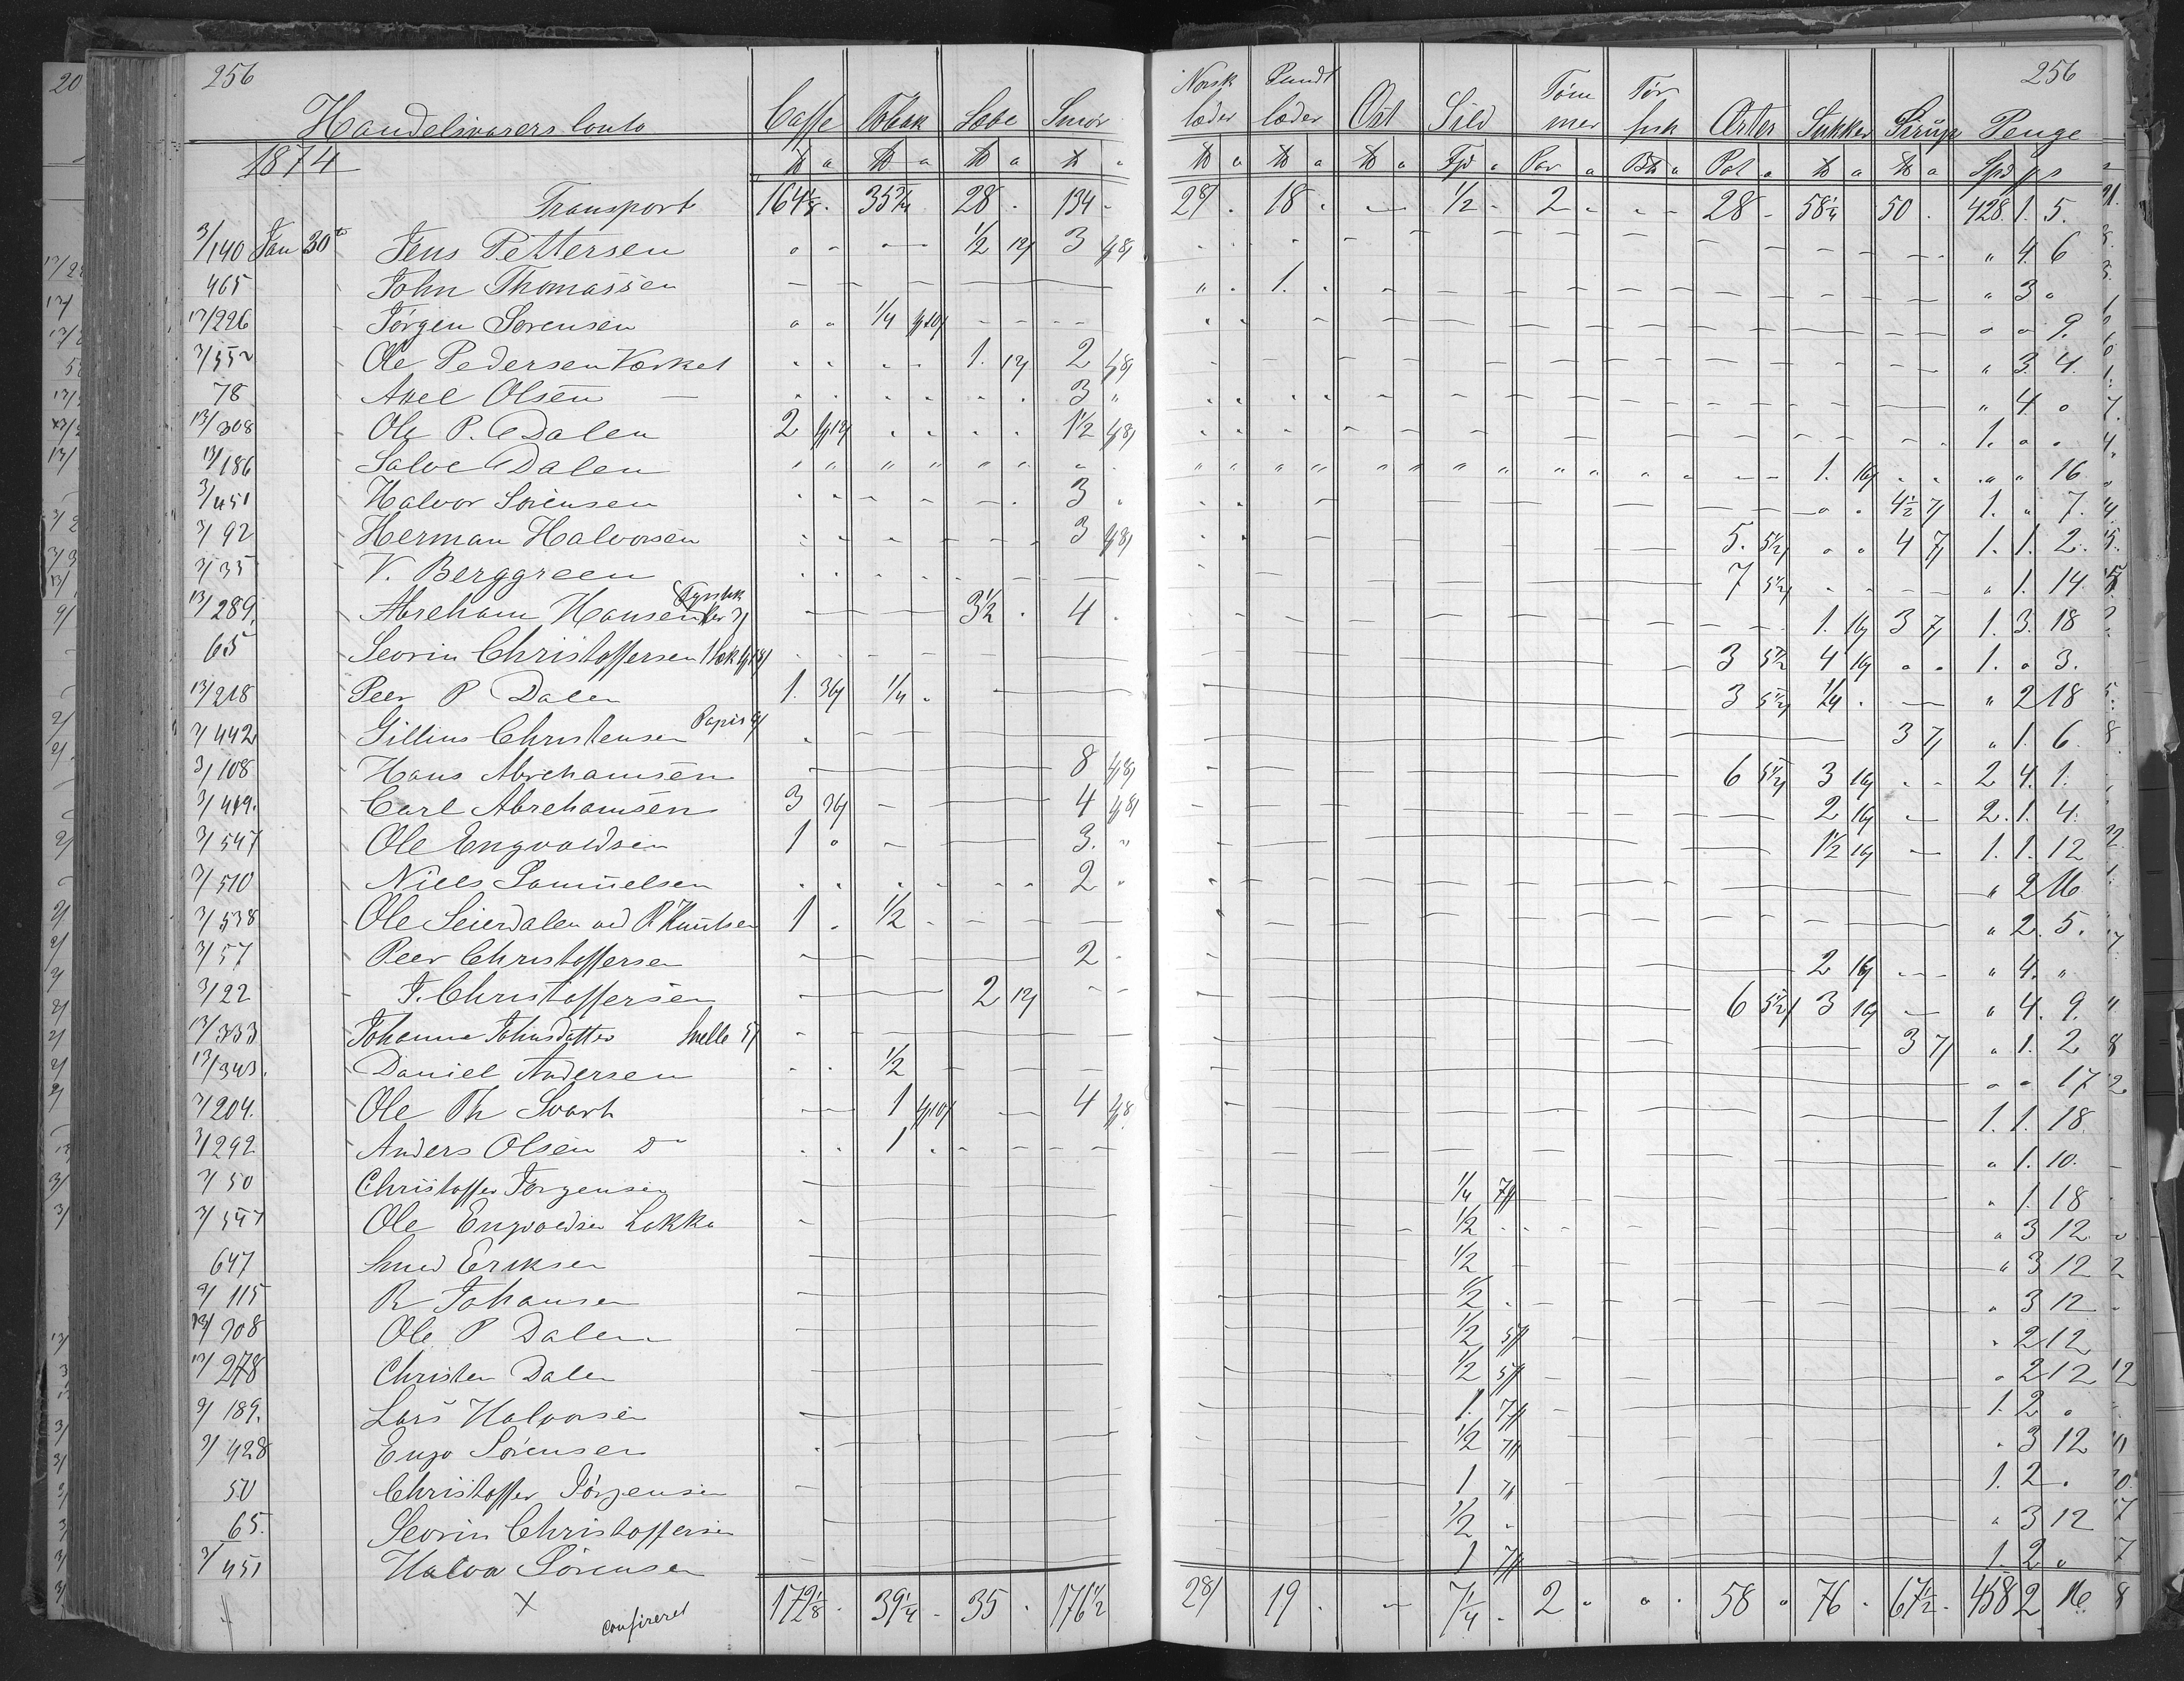 256 Norsk Pundt Töm Tör 256
Handelsvarers Conto Caffe Tobak Sæbe Smör læder læder Ost Sild mer fisk Ærter Sukker Sirup Penge
1874 ℔ a ℔ a ℔ a ℔ a ℔ a ℔ a ℔ a Fjd a Par a Btl a Pot a ℔ a ℔ a Spd ß
Transport 164 1/8 28 134 28 18 1/2 2 28 58 1/4 50 428. 1. 5.
3/140 Jan 30te Jens Pettersen 1/2 12/ 3 " 4. 6
465 John Thomassen 1. " 3 "
13/226 Jörgen Sørensen 1/4 " " 9.
3/552 Ole Pedersen Værket 1. 12/ 2 " 3. 4.
78 Axel Olsen 3 " " 4 "
13/308 Ole P. Dalen 2 1 1/2 1. " "
13/186 Salve Dalen 1. 16/ " " 16
3/451 Halvor Sörensen 3 4 1/2 7/ 1. " 7.
3/92 Herman Halvorsen 3 5. 5 1/2/ 4 7/ 1. 1. 2.
3/35 V. Berggreen 7 5 1/2/ " 1. 14.
13/289. Abreham Hansen 3 1/2 4 1. 16/ 3 7/ 1. 3. 18
65 Seorin Christoffersen 3 5 1/2 4 16/ 1. " 3.
13/218 Peer P Dalen 1. 36/ 1/4 3 5 1/2/ 1/4 " 2 18
3/442 Gillius Christensen Papir 3 7/ " 1. 6.
3/108 Hans Abrehamsen 8 6 5 1/2/ 3 16/ 2 4. 1.
3/449. Carl Abrehamsen 3 36/ 4 2 16/ 2. 1. 4.
3/547 Ole Engvoldsen 1 " 3. " 1 1/2 16/ 1. 1. 12
3/510 Niels Samuelsen 2 " " 2 16.
3/538 Ole Seierdalen ved P Knutsen 1 1/2 " 2. 5.
3/57 Peer Christoffersen 2 2 16/ " 4. "
3/22 T. Christoffersen 2 12/ 6 5 1/2/ 3 16/ " 4. 9.
13/333 Johanne Johnsdatter 3 7/ " 1. 2
13/343. Daniel Andersen 1/2 " " 17
3/204. Ole Th Svart 1 4 1. 1. 18.
3/292 Anders Olsen Do 1 " 1. 10.
3/50 Christoffer Jörgensen 1/4 7ß " 1. 18
3/547 Ole Engvoldsen Løkka 1/2 " 3 12.
647 Knud Eriksen 1/2 " 3 12
9/115 R Johansen 1/2 " 3 12
13/308 Ole P Dalen 1/2 5ß " 2 12
13/278 Christen Dalen 1/2 5ß " 2 12
3/189. Lars Halvorsen 1. 7ß 1. 2 "
3/428 Engv Sörensen 1/2 7ß " 3 12
50 Christoffer Jörgensen 1 7ß 1. 2 "
65. Seorin Christoffersen 1/2 " " 3 12
3/451 Halvor Sörensen 1 7ß 1. 2 "
X confireret 172 1/8 39 1/4 35 176 1/2 28 19 7 1/4 2 58 76 67 1/2 458 2 16